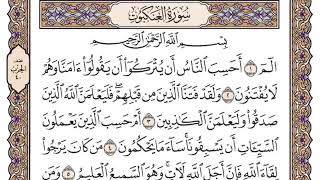 سُورَةُ العَنكَبُوتِ
بِسْمِ ٱللَّهِ ٱلرَّحْمَٰنِ ٱلرَّحِيمِ
الٓمٓ ١ أَحَسِبَ ٱلنَّاسُ أَن يُتْرَكُوٓا۟ أَن يَقُولُوٓا۟ ءَامَنَّا وَهُمْ
لَا يُفْتَنُونَ ٢ وَلَقَدْ فَتَنَّا ٱلَّذِينَ مِن قَبْلِهِمْ فَلَيَعْلَمَنَّ ٱللَّهُ ٱلَّذِينَ
صَدَقُوا۟ وَلَيَعْلَمَنَّ ٱلْكَٰذِبِينَ ٣ أَمْ حَسِبَ ٱلَّذِينَ يَعْمَلُونَ
ٱلسَّيِّـَٔاتِ أَن يَسْبِقُونَا سَآءَ مَا يَحْكُمُونَ ٤ مَن كَانَ يَرْجُوا۟
لِقَآءَ ٱللَّهِ فَإِنَّ أَجَلَ ٱللَّهِ لَـَٔاتٍ وَهُوَ ٱلسَّمِيعُ ٱلْعَلِيمُ ٥ وَمَن
الحزب
٤٠